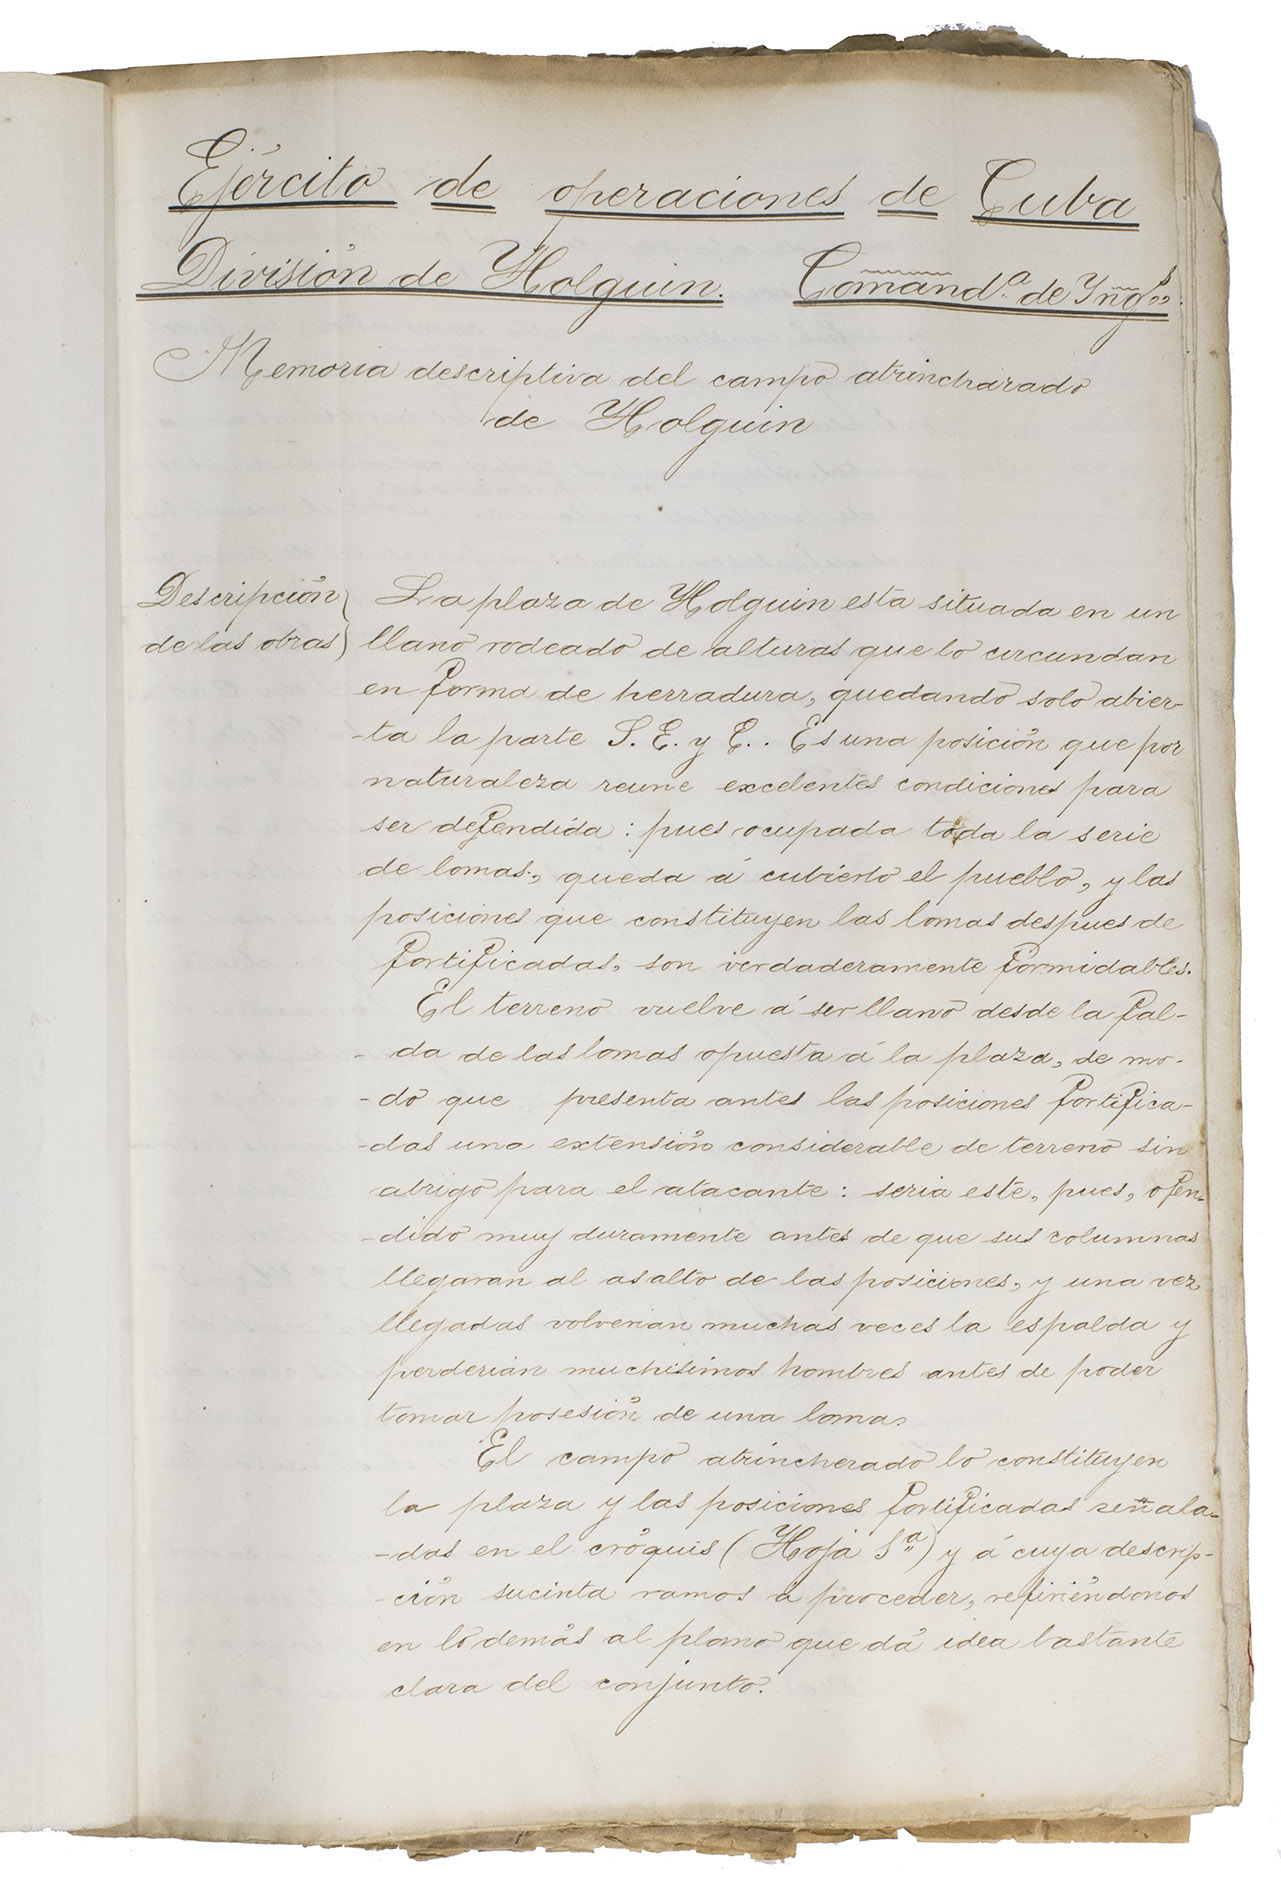 Ejército de operaciones de Cuba
División de Holguin. Comand.ª de Yng.s
Memoria descriptiva del campo atrincharado
de Holguin
Descripción
de las obras
La plaza de Holguin esta situada en un
llano rodeado de alturas que lo circundan
en forma de herradura, quedando solo abier-
-ta la parte S. E. y E.. Es una posición que por
naturaleza reune excelentes condiciones para
ser defendida: pues ocupada toda la serie
de lomas, queda á cubierto el pueblo, y las
posiciones que constituyen las lomas despues de
fortificadas, son verdaderamente formidables.
El terreno vuelve á ser llano desde la fal-
-da de las lomas opuesta á la plaza, de mo-
-do que presenta antes las posiciones fortifica-
-das una extensión considerable de terreno sin
abrigo para el atacante: seria este, pues, ofen-
-dido muy duramente antes de que sus columnas
llegaran al asalto de las posiciones, y una vez
llegadas volverian muchas veces la espalda y
perderian muchisimos hombres antes de poder
tomar posesión de una loma.
El campo atrincherado lo constituyen
la plaza y las posiciones fortificadas señala-
-das en el cróquis (Hoja ª) y á cuya descrip-
-ción sucinta vamos á proceder, refiriéndonos
en lo demás al plano que dá idea bastante
clara del conjunto.